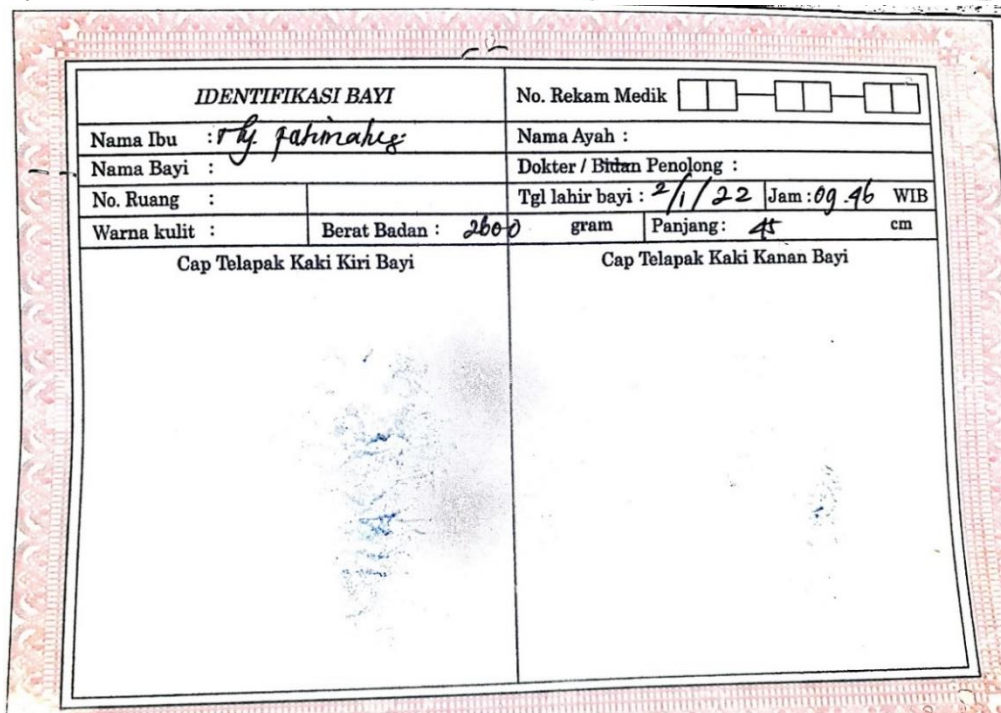 IDENTIFIKASI BAYI
No. Rekam Medik
Nama Ibu : Ny.
Nama Ayah :
Nama Bayi :
Dokter / Bidan Penolong :
No. Ruang :
Tgl lahir bayi : 2/1/22 Jam : 09.46 WIB
Warna kulit : Berat Badan : 2600 gram Panjang : 45 cm
Cap Telapak Kaki Kiri Bayi
Cap Telapak Kaki Kanan Bayi